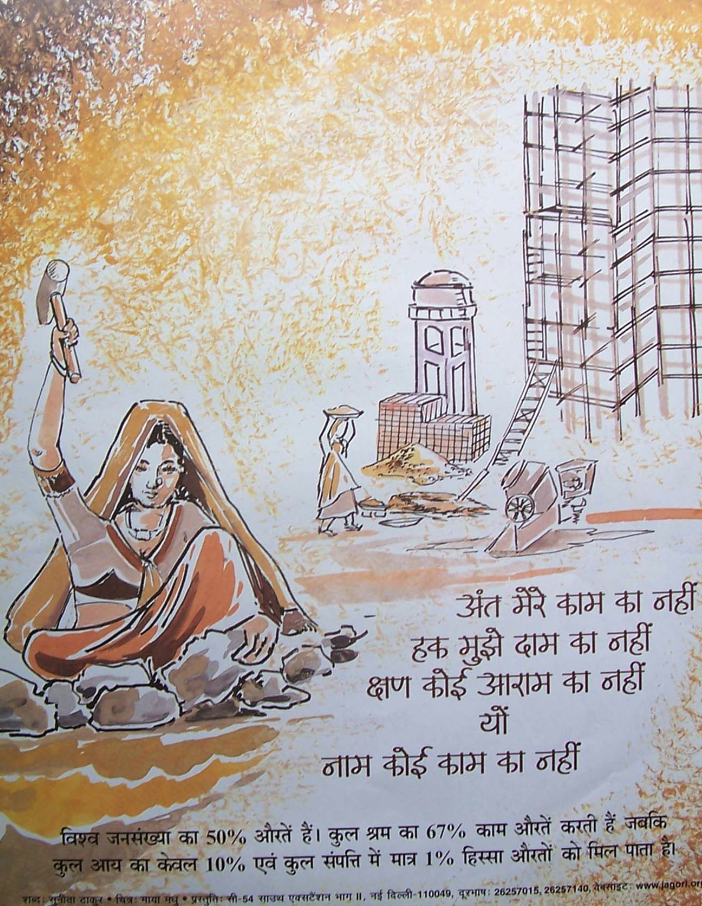 अंत मेरे काम का नहीं
हक मुझे दाम का नहीं
क्षण कोई आराम का नहीं
यों
नाम कोई काम का नहीं
विश्व जनसंख्या का 50% औरतें हैं। कुल श्रम का 67% काम औरतें करती हैं जबकि
कुल आय का केवल 10% एवं कुल संपत्ति में मात्र 1% हिस्सा औरतों को मिल पाता है।
शब्द: सुनीता ठाकुर • चित्र: माया मधु • प्रस्तुति: सी-54 साउथ एक्सटैंशन भाग II, नई दिल्ली-110049, दूरभाष: 26257015, 26257140, वेबसाइट: www.jagori.org